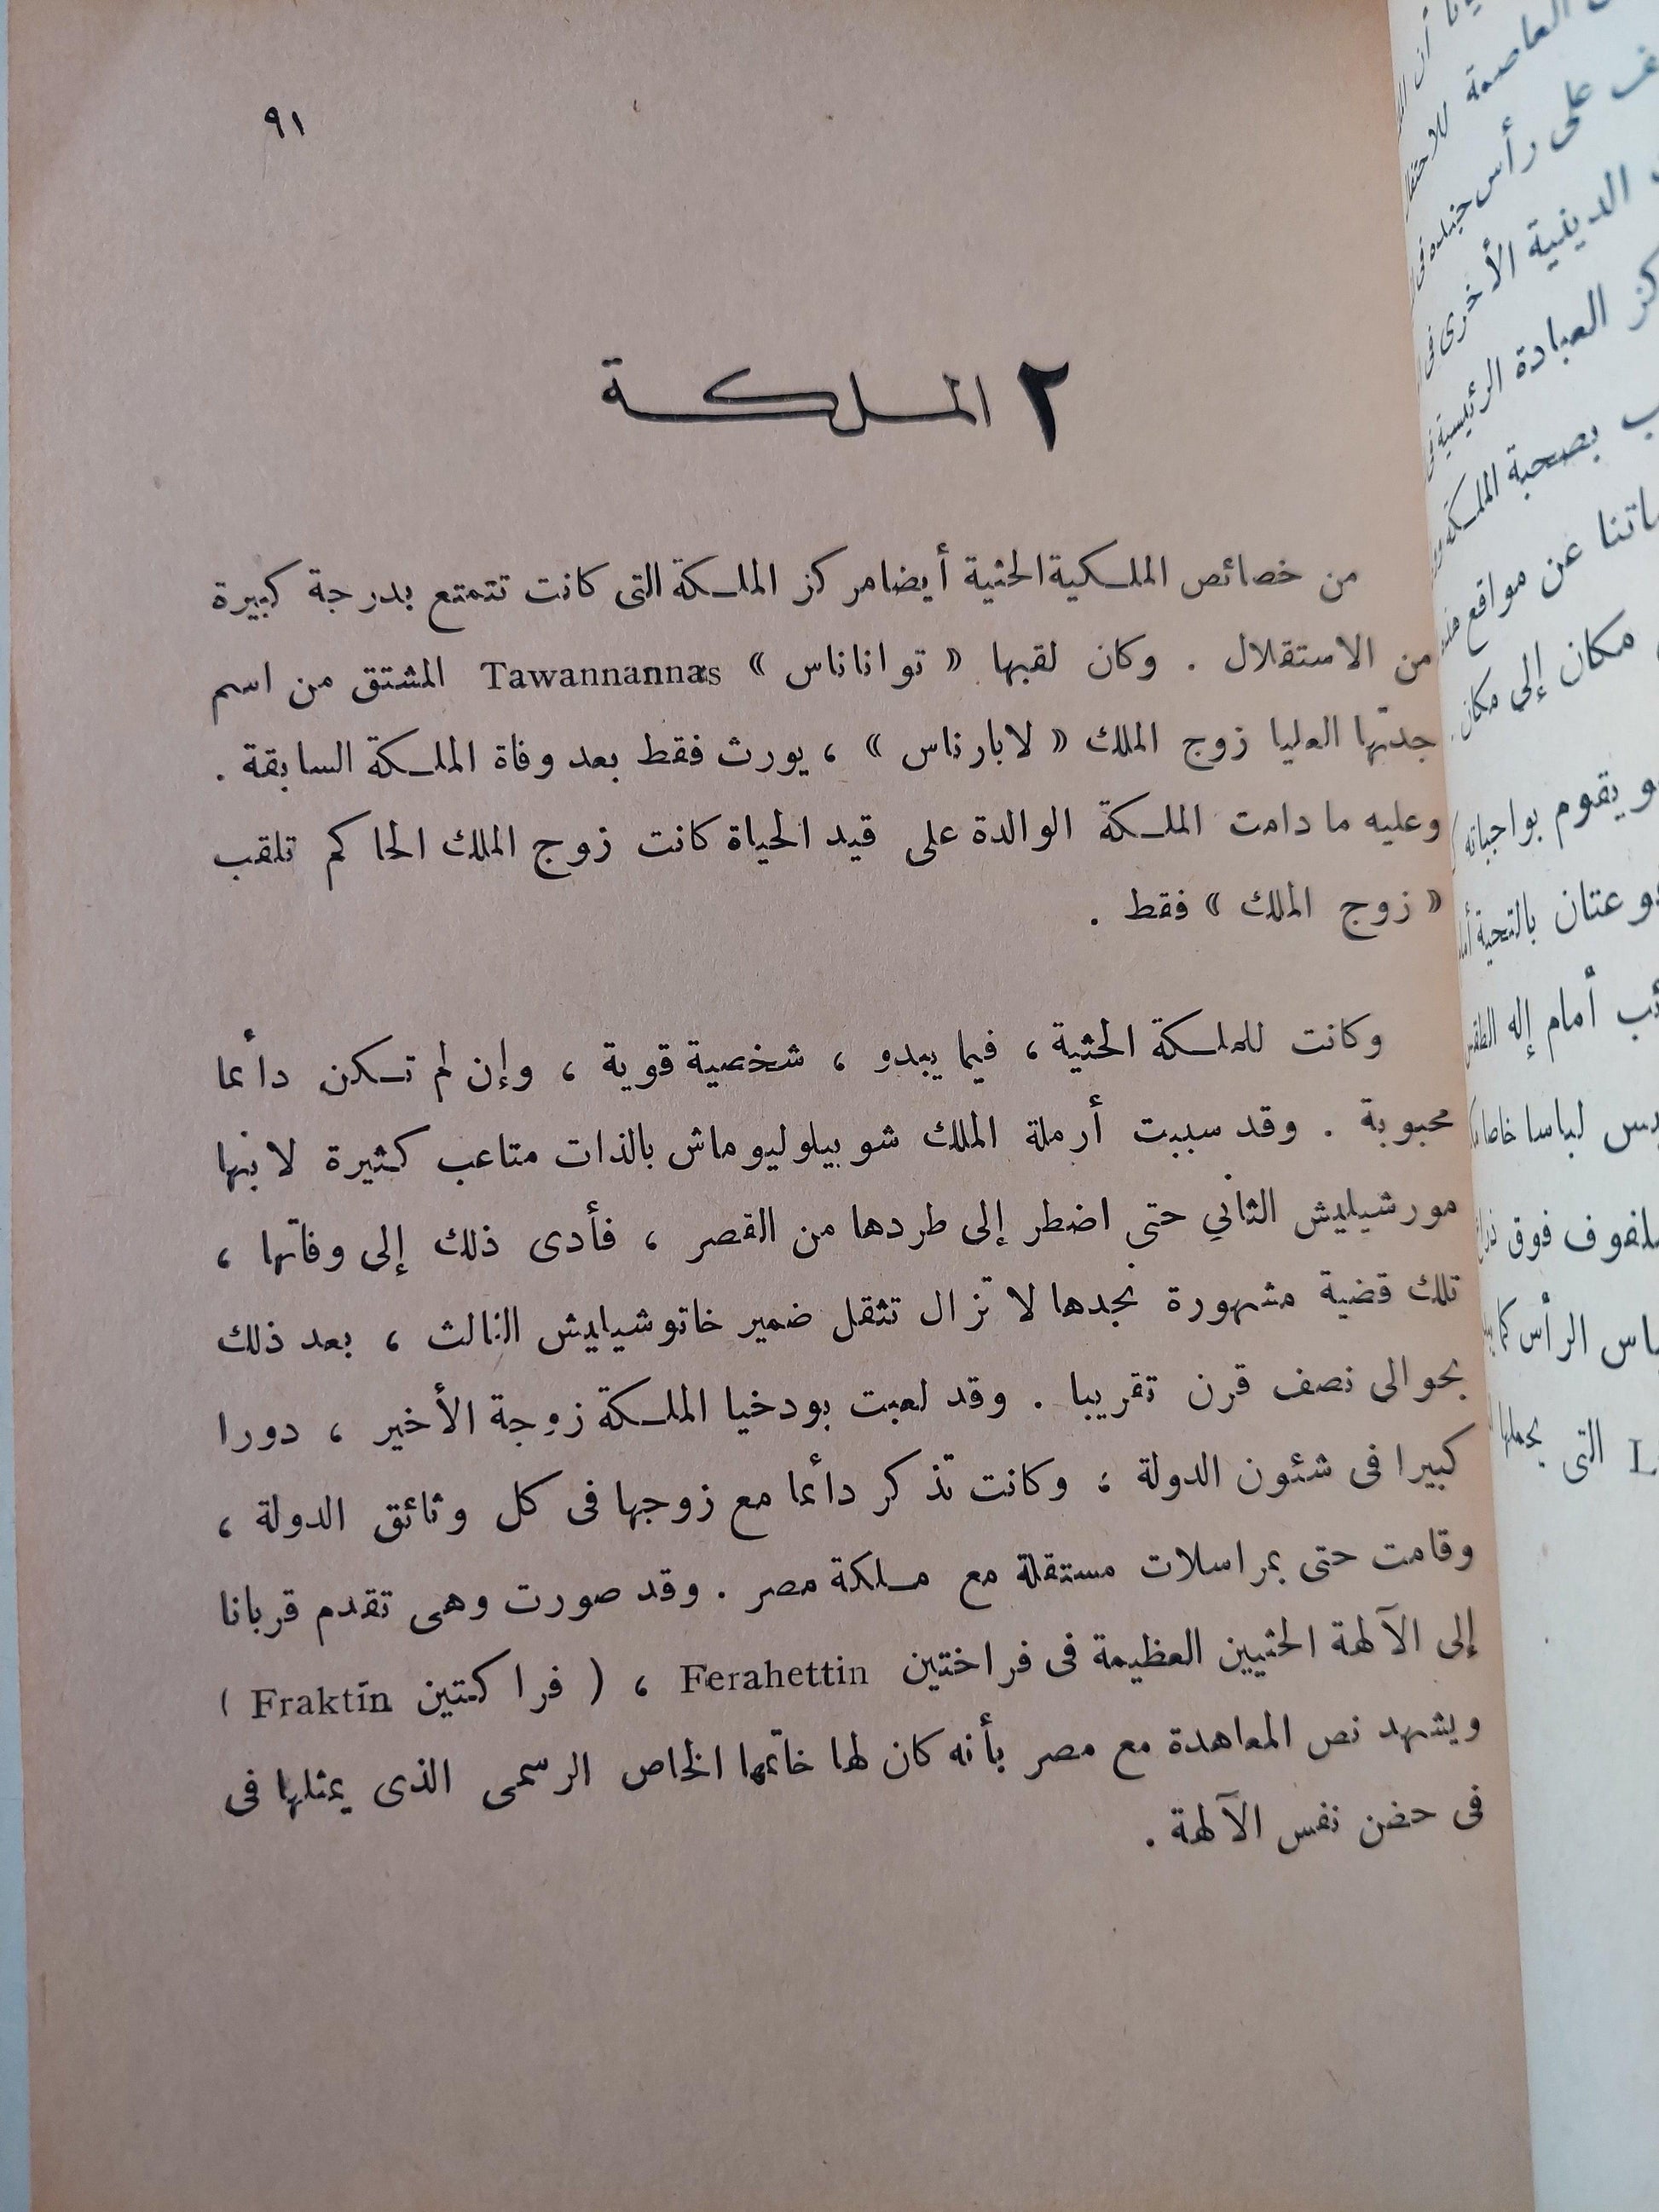 ٩١
٢ الملكة
من خصائص الملكية الحثية أيضا مركز الملكة التى كانت تتمتع بدرجة كبيرة
من الاستقلال . وكان لقبها « تواناناس » Tawannannas المشتق من اسم
جدتها العليا زوج الملك « لابارناس » ، يورث فقط بعد وفاة الملكة السابقة .
وعليه ما دامت الملكة الوالدة على قيد الحياة كانت زوج الملك الحاكم تلقب
« زوج الملك » فقط .
وكانت للملكة الحثية ، فيما يبدو ، شخصية قوية ، وإن لم تكن دائما
محبوبة . وقد سببت أرملة الملك شوبيلوليوماش بالذات متاعب كثيرة لابنها
مورشيليش الثاني حتى اضطر إلى طردها من القصر ، فأدى ذلك إلى وفاتها ،
تلك قضية مشهورة نجدها لا تزال تثقل ضمير خاتوشيليش الثالث ، بعد ذلك
بحوالى نصف قرن تقريبا . وقد لعبت بودخيا الملكة زوجة الأخير ، دورا
كبيرا فى شئون الدولة ، وكانت تذكر دائما مع زوجها فى كل وثائق الدولة ،
وقامت حتى بمراسلات مستقلة مع ملكة مصر . وقد صورت وهى تقدم قربانا
إلى الآلهة الحثيين العظيمة فى فراختين Ferahettin ، ( فراكتين Fraktin )
ويشهد نص المعاهدة مع مصر بأنه كان لها خاتمها الخاص الرسمى الذى يمثلها فى
فى حضن نفس الآلهة .
العاصمة
على رأس
الدينية الأخرى فى
العبادة الرئيسية فى
بصحبة الملكة
عن مواقع
مكان إلى مكان
يقوم بواجباته
بالتحية
أمام إله
لباسا خاصا
فوق
الرأس كما
التى يحملها